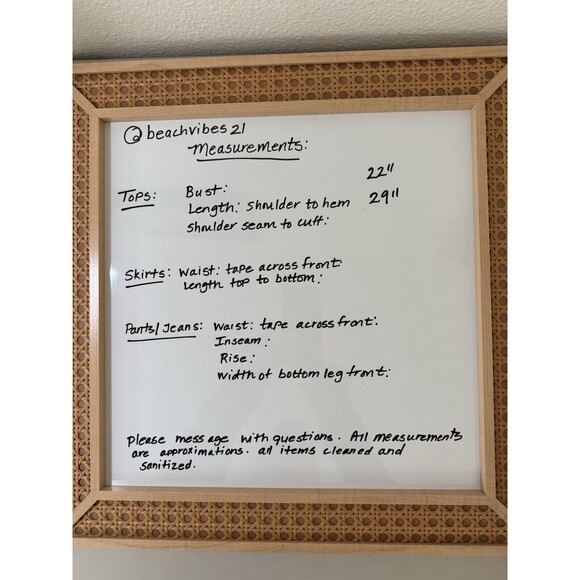 @beachvibes21
Measurements:
Tops: Bust: 22"
Length: Shoulder to hem 29"
Shoulder seam to cuff:
Skirts: Waist: tape across front:
Length top to bottom:
Pants/Jeans: Waist: tape across front:
Inseam:
Rise:
Width of bottom leg front:
Please message with questions. All measurements
are approximations. all items cleaned and
sanitized.